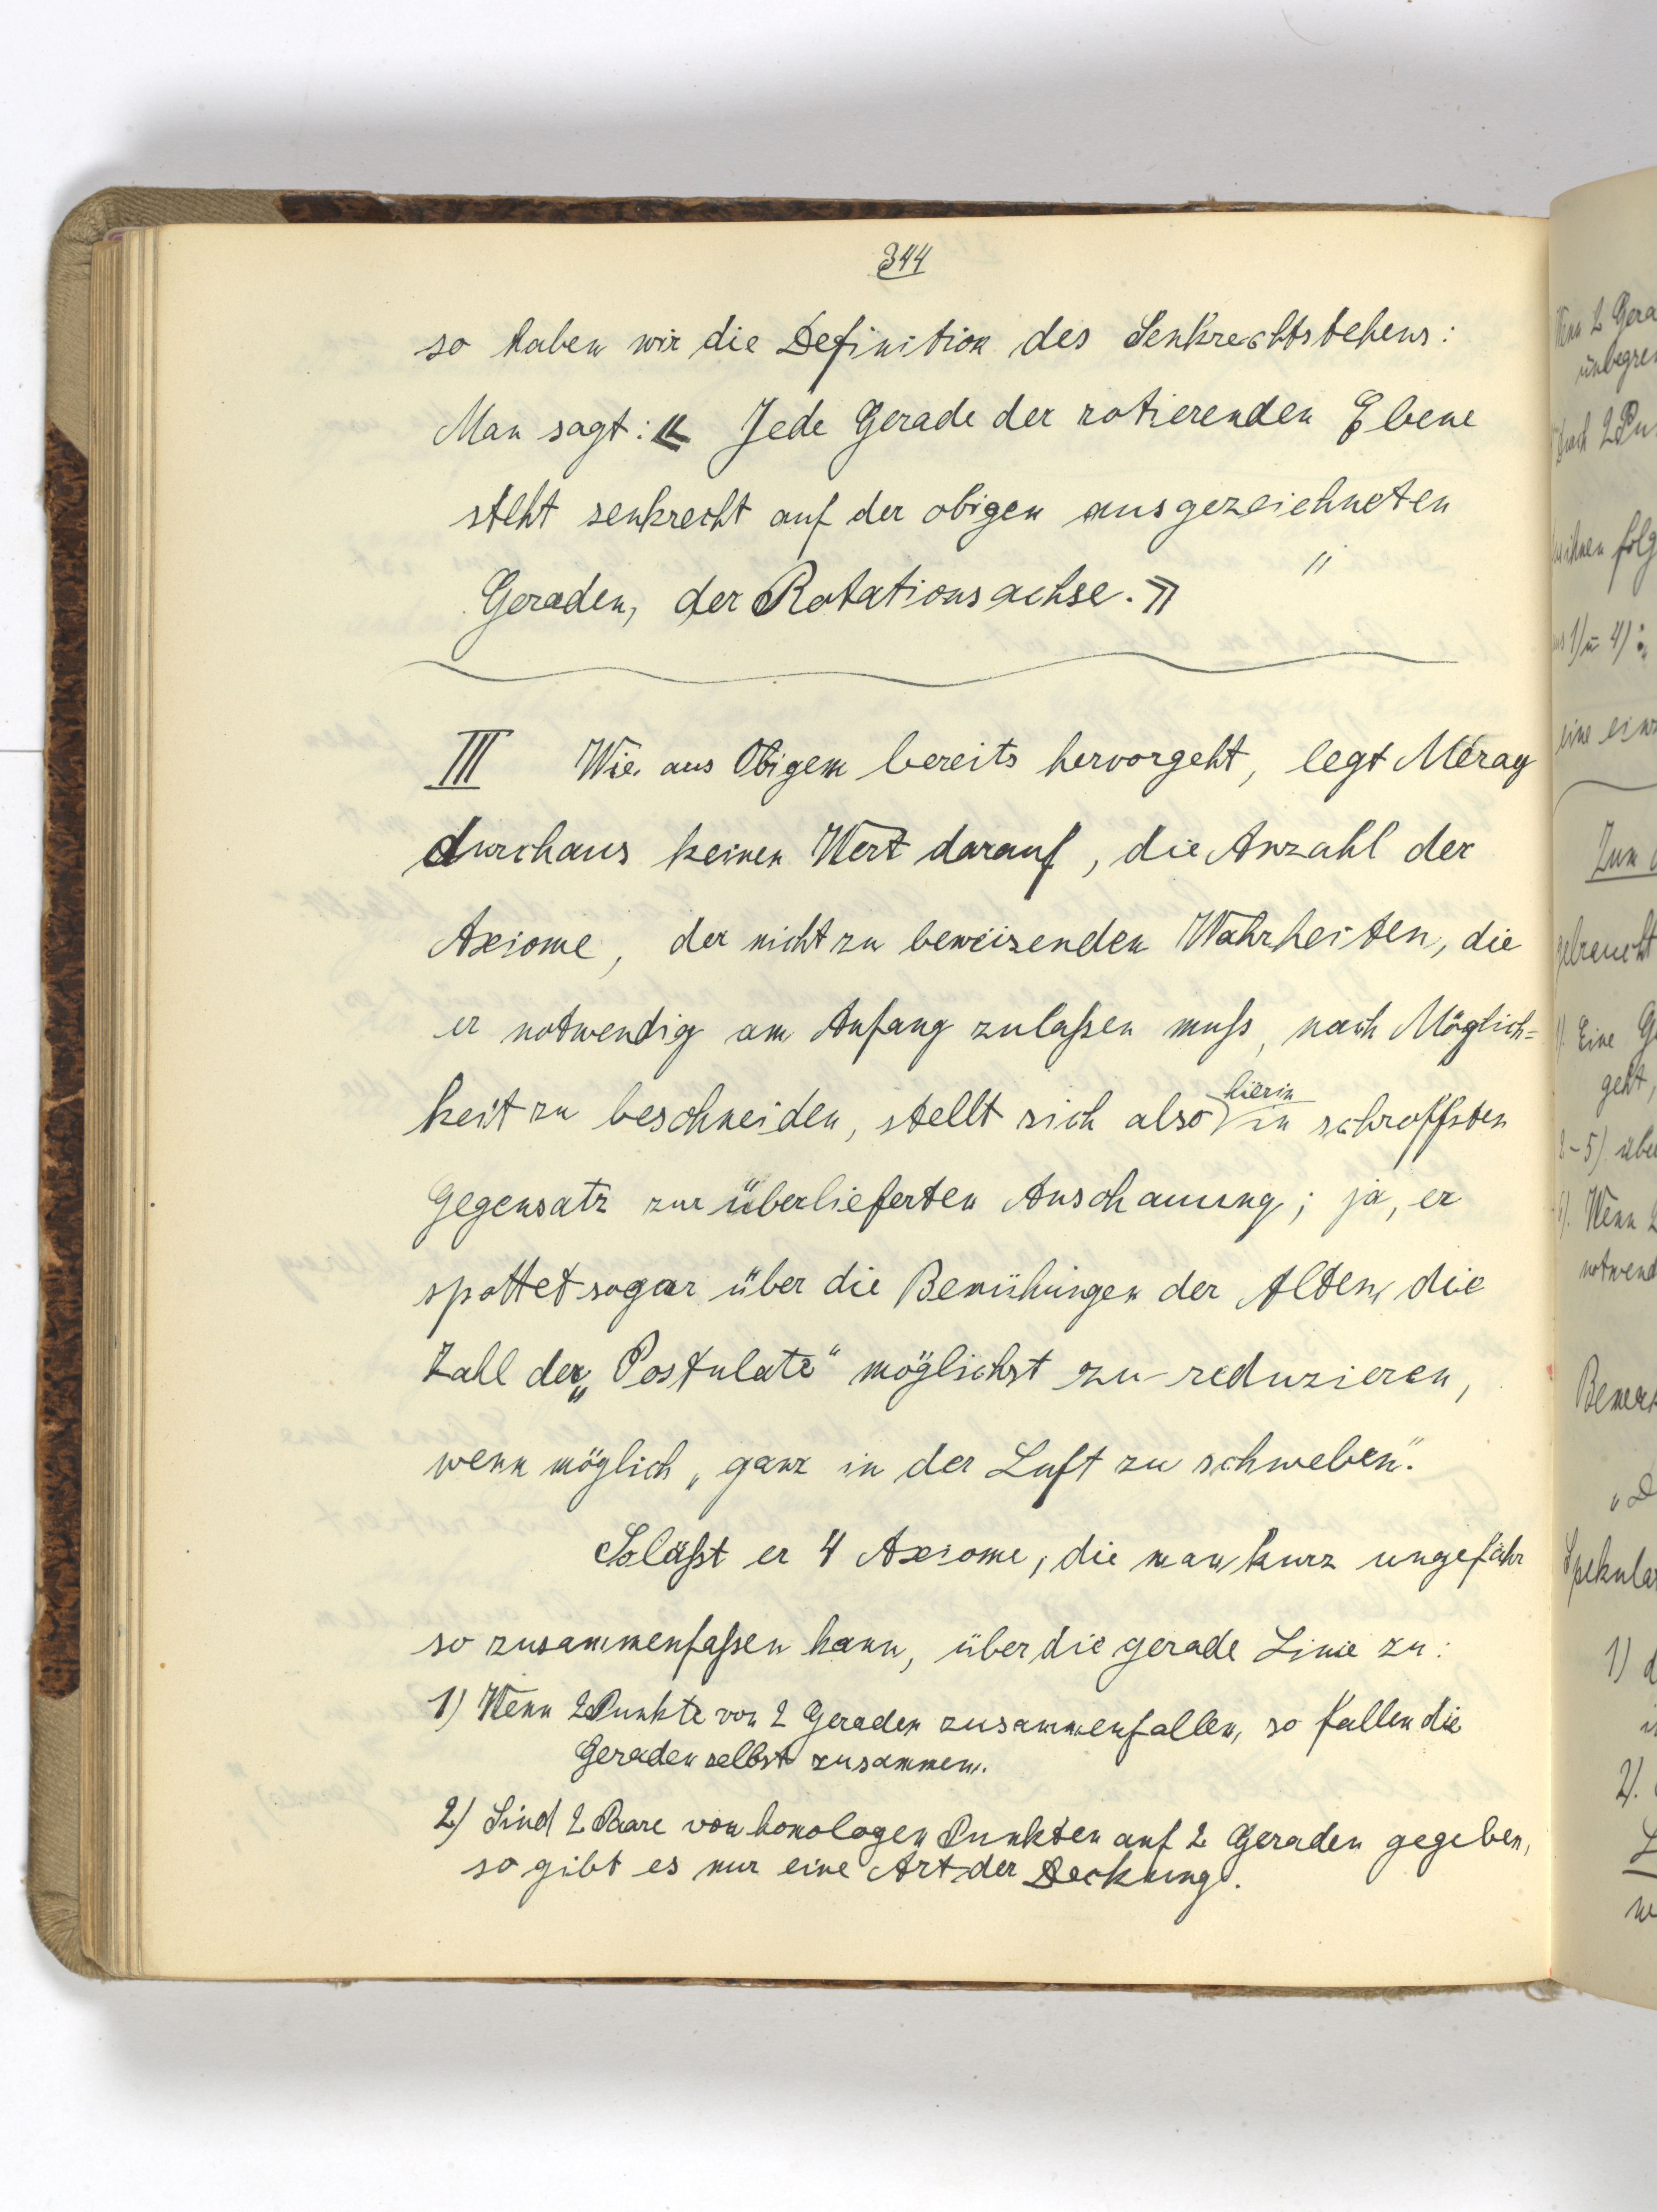 344
so haben wir die Definition des Senkrechtstehens:
Man sagt: « Jede Gerade der rotierenden Ebene
steht senkrecht auf der obigen ausgezeichneten
Geraden, der Rotationsachse. » "
III Wie aus Obigem bereits hervorgeht, legt Méray
durchaus keinen Wert darauf, die Anzahl der
Axiome, der nicht zu beweisenden Wahrheiten, die
er notwendig am Anfang zulaßen muß, nach Möglich=
keit zu beschneiden, stellt sich also hierin in schroffsten
Gegensatz zur überlieferten Anschauung; ja, er
spottet sogar über die Bemühungen der Alten, die
Zahl der „Postulate“ möglichst zu reduzieren,
wenn möglich „ganz in der Luft zu schweben“.
So läßt er 4 Axiome, die man kurz ungefähr
so zusammenfaßen kann, über die gerade Linie zu:
1) Wenn 2 Punkte von 2 Geraden zusammenfallen, so fallen die
Geraden selbst zusammen.
2) Sind 2 Paare von homologen Punkten auf 2 Geraden gegeben,
so gibt es nur eine Art der Deckung.
Wenn 2 Gera
unbegre
durch 2 Pu
ihnen folg
1) u 4):
eine ein
Zum
gebraucht
Eine G
geht,
2-5) übe
Wenn 2
notwend
Bemerk
Spekula
1) d
2).